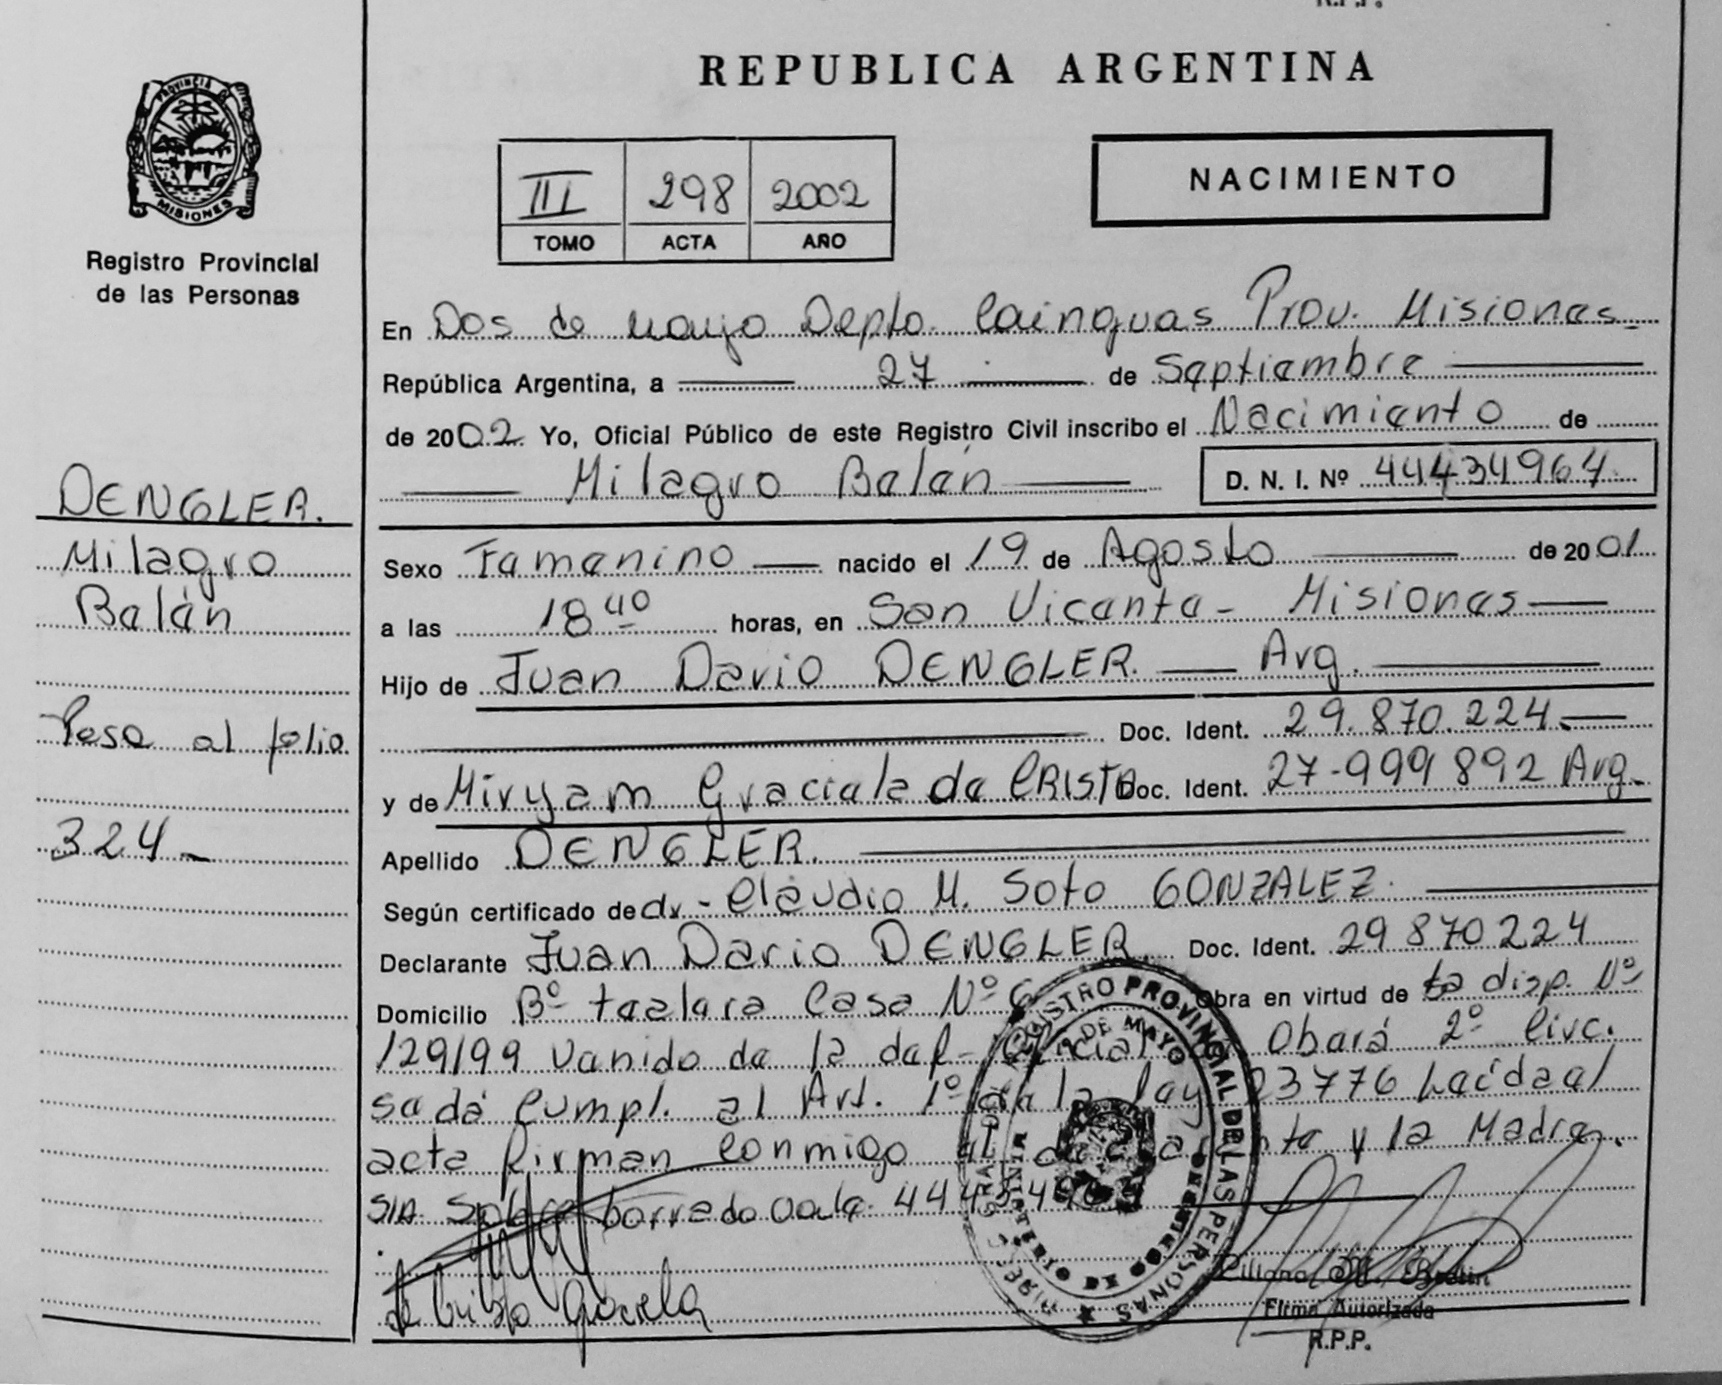 R.P.P.
REPUBLICA ARGENTINA
PROVINCIA DE
MISIONES
Registro Provincial
de las Personas
III 298 2002
TOMO ACTA AÑO
NACIMIENTO
En Dos de mayo Depto. Cainguas Prov. Misiones
República Argentina, a 27 de Septiembre
de 2002. Yo, Oficial Público de este Registro Civil inscribo el Nacimiento de
Milagro Belén D. N. I. Nº 44434964
DENGLER.
Milagro
Belén
Pasa al folio
324
Sexo Femenino nacido el 19 de Agosto de 2001
a las 18 40 horas, en San Vicente - Misiones
Hijo de Juan Dario DENGLER. Arg.
Doc. Ident. 29.870.224
y de Miryam Graciela de CRISTO Doc. Ident. 27-999 892 Arg.
Apellido DENGLER.
Según certificado de dr - Claudio M. Soto GONZALEZ.
Declarante Juan Dario DENGLER Doc. Ident. 29 870224
Domicilio Bº Casa Nº 6 Obra en virtud de la disp. Nº
129/99 venido de la del- Oberá 2º Circ.
se dá Cumpl. al Art. 1º de la Ley 23776 Leída el
acta firman conmigo el y la Madre.
S/R borrado vale 444349
de Cristo Graciela
REGISTRO PROVINCIAL DE LAS PERSONAS
DE MAYO
MINISTERIO DE GOBIERNO
Liliana M.
Firma Autorizada
R.P.P.